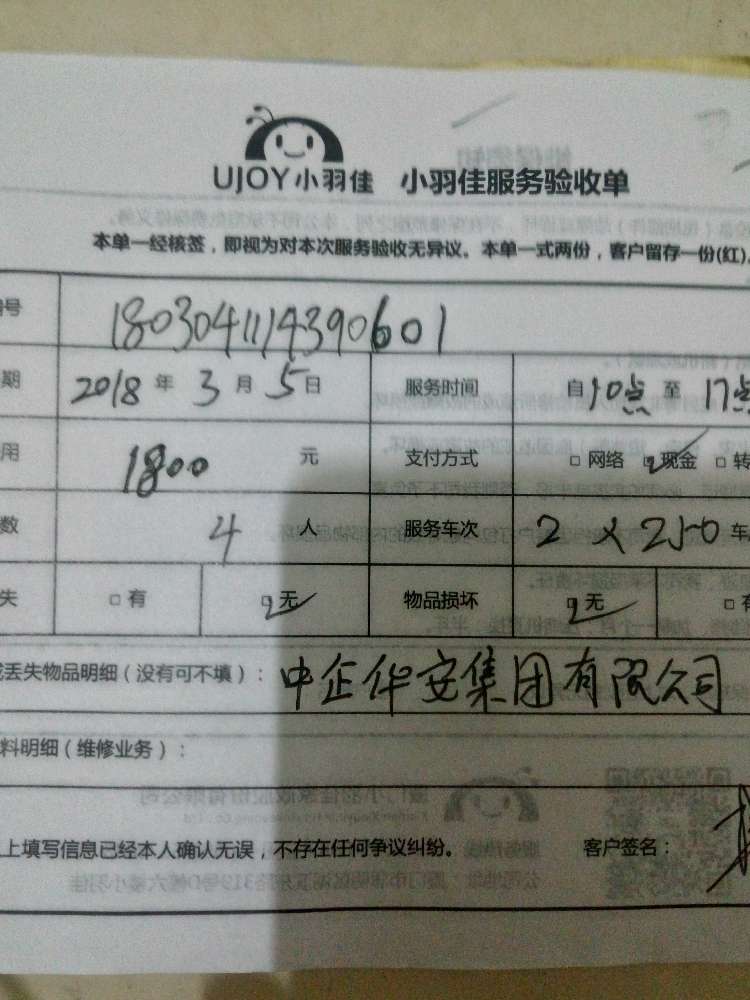 UJOY小羽佳 小羽佳服务验收单
本单一经核签，即视为对本次服务验收无异议。本单一式两份，客户留存一份(红)
号 1803041114390601
期 2018年3月5日 服务时间 自10点至17点
用 1800元 支付方式 □网络 ☑现金 □转
数 4人 服务车次 2×250车
失 □有 ☑无 物品损坏 ☑无 □有
丢失物品明细（没有可不填）：中企华安集团有限公司
料明细（维修业务）：
上填写信息已经本人确认无误，不存在任何争议纠纷。 客户签名：